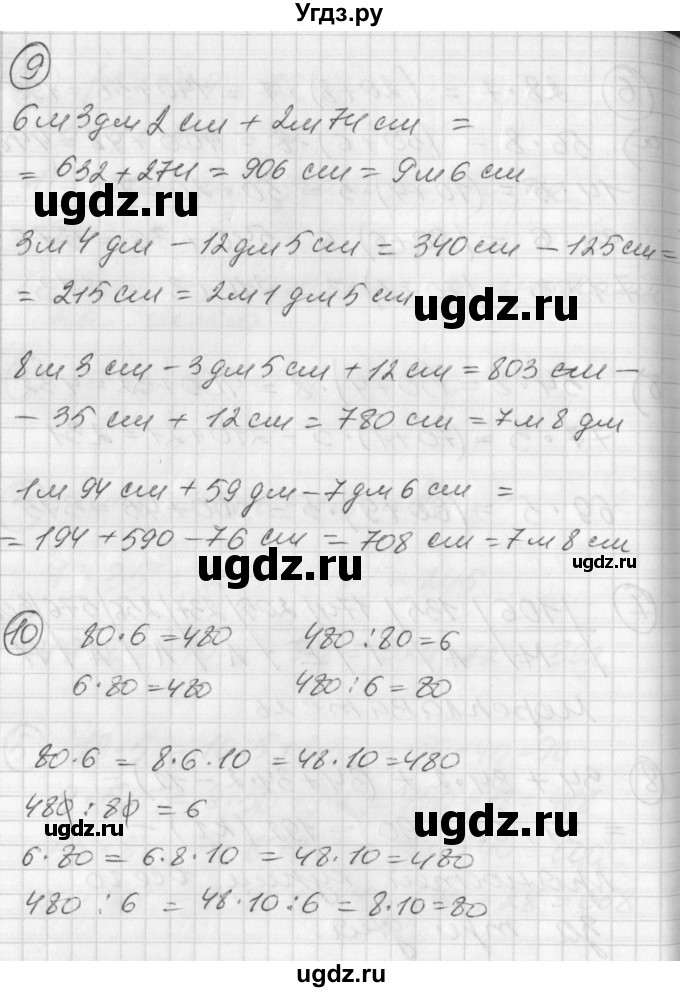 Угдз.ру
9
6м 3дм 2 см + 2м 74 см =
= 632 + 274 = 906 см = 9м 6 см
ugdz.ru
3м 4 дм - 12дм 5см = 340см - 125см =
= 215см = 2м 1 дм 5см
ugdz.ru
8м 3 см - 3дм 5см + 12см = 803 см -
- 35 см + 12см = 780 см = 7м 8 дм
1м 94 см + 59 дм - 7дм 6 см =
= 194 + 590 - 76 см = 708 см = 7м 8 см
ugdz.ru
ugdz.ru
10 80·6 = 480 480 : 80 = 6
6·80 = 480 480 : 6 = 80
80·6 = 8·6·10 = 48·10 = 480
480 : 80 = 6
ugdz.ru
ugdz.ru
6·80 = 6·8·10 = 48·10 = 480
480 : 6 = 48·10:6 = 8·10 = 80
ugdz.ru